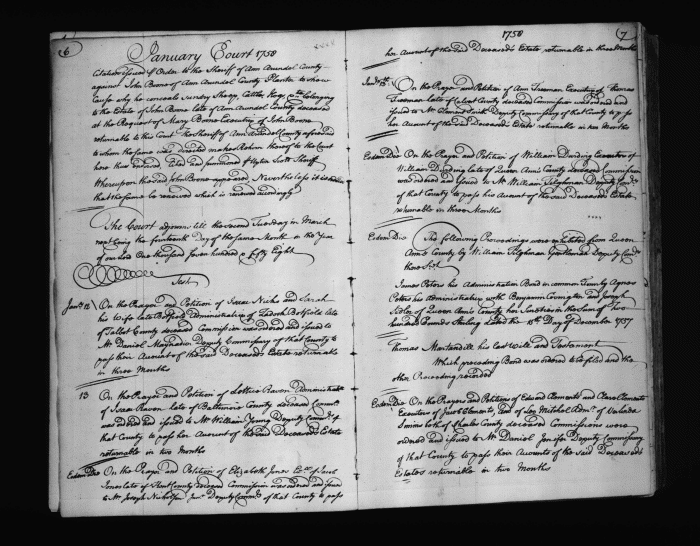 6
January Court 1758
Citation issued & Order to the Sheriff of Ann Arundel County
against John Boone of Ann Arundel County Planter to show
Cause why he conceals Sundry Sheep, Cattle, Hogs belonging
to the Estate of John Boone late of Ann Arundel County deceased
at the Request of Mary Boone Executrix of John Boone
returnable to this Court The Sheriff of Ann Arundel County aforesaid
to whom the same was directed makes Return thereof to this Court
here thus endorsed Sheriff
Whereupon the said John Boone appeared Nevertheless it is
that the same be renewed which is renewed accordingly
The Court adjourns till the second Tuesday in March
next being the fourteenth Day of the same Month in the Year
of our Lord One thousand seven hundred & fifty Eight
Test
Janry 12 On the Prayer and Petition of Isaac and Sarah
his Wife late Administratrix of late
of Talbot County deceased Commission was ordered and issued to
Mr Daniel Maynadier Deputy Commissary of that County to
pass their Account of the said Deceased's Estate returnable
in three Months
13 On the Prayer and Petition of Lettice Raven Administratx
of Isaac Raven late of Baltimore County deceased Commisn
was ordered and issued to Mr William Young Deputy Commry of
that County to pass her Account of the said Deceased's Estate
returnable in two Months
Eodem Die On the Prayer and Petition of Elizabeth Jones
Jones late of Kent County deceased Commission was ordered and issued
to Mr Joseph Nicholson Junr Deputy Commry of that County to pass
1758
7
her Account of the said Deceased's Estate returnable in three Months
On the Prayer and Petition of Ann Freeman Executrix of Thomas
Freeman late of Calvert County deceased Commission was ordered and
issued to Mr Smith Deputy Commissary of that County to pass
her Account of the said Deceased's Estate returnable in two Months
Eodem Die On the Prayer and Petition of William Executor of
William late of Queen Ann's County deceased Commission
was ordered and issued to Mr William Tilghman Deputy
of that County to pass his Account of the said Deceased's Estate
returnable in three Months
Eodem Die The following Proceedings were exhibited from Queen
Ann's County by William Tilghman Gentleman Deputy
thereof
James Peters his Administration Bond in common Agnes
Peters his Administratrix with Benjamin Covington and
of Queen Ann's County her Sureties in the Sum of two
hundred Pounds Sterling dated the 15th Day of December 1757
Thomas his Last Will and Testament
Which preceding Bond was ordered to be filed and the
other Proceeding recorded
Eodem Die On the Prayer and Petitions of Edward Clements and Clare Clements
Executors of Jacob Clements and of Mitchel Admr of
Simms both of Charles County deceased Commissions were
ordered and issued to Mr Daniel Jenifer Deputy Commissary
of that County to pass their Accounts of the said Deceased's
Estates returnable in two Months